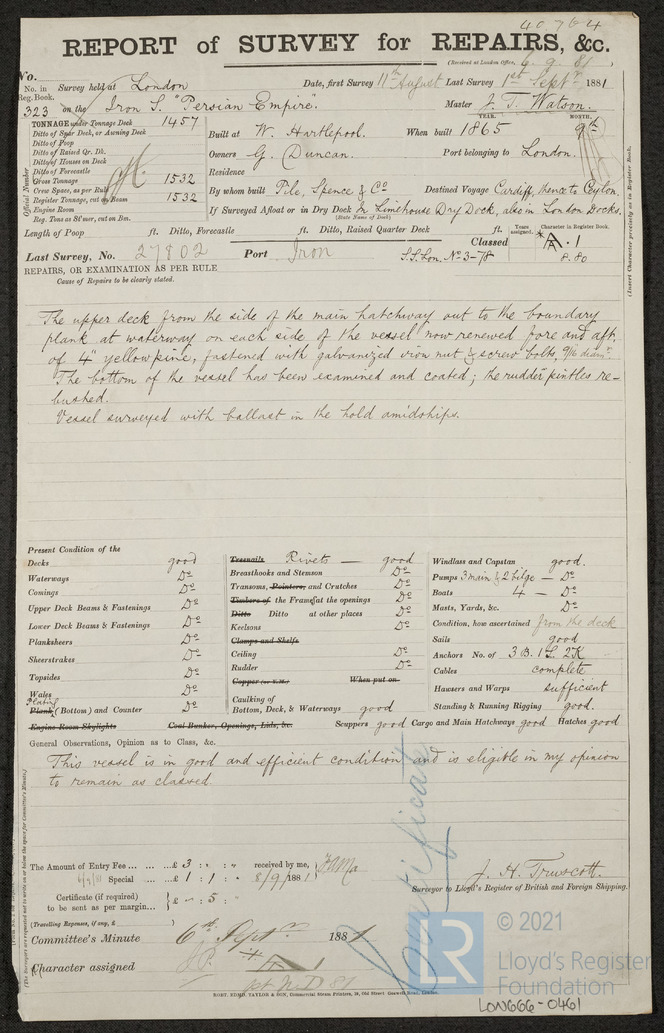 40764
REPORT of SURVEY for REPAIRS, &c.
(Received at London Office, 6.9.81
No.
No. in Reg. Book. Survey held at London Date, first Survey 11th August Last Survey 1st Septr 1881
323 on the Iron S. "Persian Empire". Master J. T. Watson.
TONNAGE under Tonnage Deck 1457
Ditto of Spar Deck, or Awning Deck
Ditto of Poop
Ditto of Raised Qr. Dk.
Ditto of Houses on Deck
Ditto of Forecastle
Gross Tonnage 1532
Crew Space, as per Rule
Register Tonnage, cut on Beam 1532
Engine Room
Reg. Tons as St'mer, cut on Bm.
Official Number
YEAR. MONTH.
Built at W. Hartlepool. When built 1865 9th
Owners G. Duncan. Port belonging to London.
Residence
By whom built Pile, Spence & Co Destined Voyage Cardiff, thence to Ceylon.
If Surveyed Afloat or in Dry Dock In Limehouse Dry Dock, also in London Docks.
(State Name of Dock)
Length of Poop ft. Ditto, Forecastle ft. Ditto, Raised Quarter Deck ft.
Years assigned. Character in Register Book.
Classed A.1
Last Survey, No. 27802 Port Iron S.S.Lon. No 3-78 8.80
REPAIRS, OR EXAMINATION AS PER RULE
Cause of Repairs to be clearly stated.
(Insert Character precisely as in Register Book.
The upper deck from the side of the main hatchway out to the boundary
plank at waterway on each side of the vessel now renewed fore and aft,
of 4" yellow pine, fastened with galvanized iron nut & screw bolts, 9/16 diamr.
The bottom of the vessel has been examined and coated; the rudder pintles re-
bushed.
Vessel surveyed with ballast in the hold amidships.
Present Condition of the
Decks good
Waterways Do
Comings Do
Upper Deck Beams & Fastenings Do
Lower Deck Beams & Fastenings Do
Planksheers Do
Sheerstrakes Do
Topsides Do
Wales Do
Plating
Plank (Bottom) and Counter Do
Engine Room Skylights Coal Bunker, Openings, Lids, &c.
Treenails Rivets — good
Breasthooks and Stemson Do
Transoms, Pointers, and Crutches Do
Timbers of the Frames at the openings Do
Ditto Ditto at other places Do
Keelsons Do
Clamps and Shelfs
Ceiling Do
Rudder Do
Copper or Y.M. When put on
Caulking of
Bottom, Deck, & Waterways good
Scuppers good Cargo and Main Hatchways good Hatches good
Windlass and Capstan good.
Pumps 3 main & 2 bilge — Do
Boats 4 — Do
Masts, Yards, &c. Do
Condition, how ascertained from the deck
Sails good
Anchors No. of 3 B. 1 S. 2 K
Cables complete
Hawsers and Warps sufficient
Standing & Running Rigging good.
General Observations, Opinion as to Class, &c.
This vessel is in good and efficient condition and is eligible in my opinion
to remain as classed.
Certificate
The Amount of Entry Fee ... £ 3 : " : " received by me,
Special £ 1 : 1 : 8/9/1881
Certificate (if required)
to be sent as per margin... £ - : 5 :
(Travelling Expenses, if any, £ )
J. H. Truscott.
Surveyor to Lloyd's Register of British and Foreign Shipping.
Committee's Minute 6th Septr 1881
Character assigned A 1
ROBT. EDMD. TAYLOR & SON, Commercial Steam Printers, 19, Old Street, Goswell Road, London.
LR
© 2021
Lloyd's Register
Foundation
LON666-0461